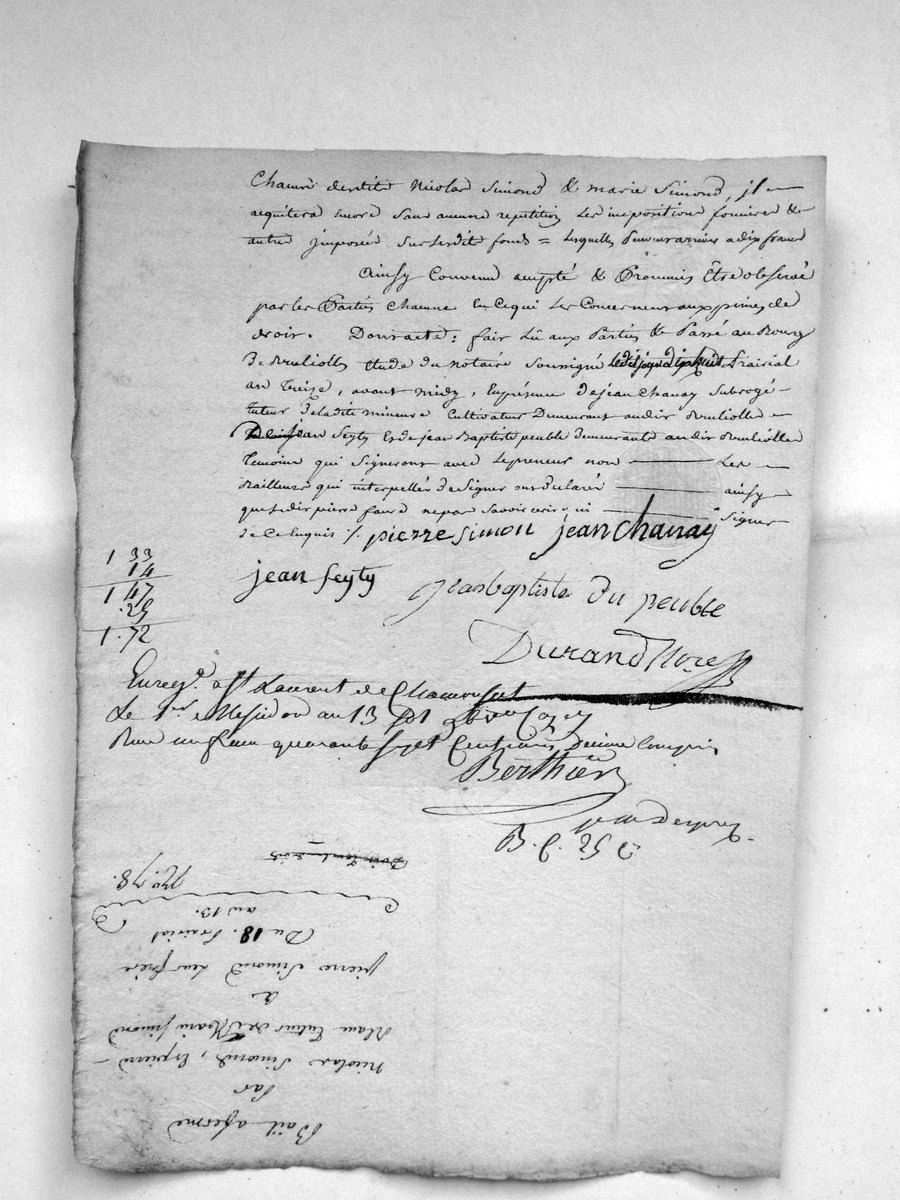 Chacun desdits Nicolas Simond & marie Simond, il
aquitera encore sans aucune repetition les impositions foncières &
autres imposées sur lesdits fonds = lesquelles demeurent à dix francs
Ainsy Convenu accepté & Promis Être observé
par les Parties Chacune en Ce qui les Concerne aux peines de
droit. Dont acte: fait Lû aux Parties & Passé au Bourg
De Brulliolles Etude du notaire Soussigné le dix huit Prairial
an treize, avant midy, En présence de jean Chanay Subrogé
tuteur de ladite mineure Cultivateur Demeurant audit Brulliolles
jean Seyty & de jean Baptiste peuble demeurants audit Brulliolles
temoins qui Signeront avec le preneur non les
Bailleurs qui interpellés de Signer ont declaré ainsy
que ledit pierre faure ne pas Savoir ecrire ni Signer
de Ce Enquis /. pierre simon jean chanay
1 33
14
1 47
. 25
1. 72
jean seyty
jean baptiste du peuble
Durand Nore
Enregé. a St Laurent de Chamousset
Le 1er Messidor an 13
Reçu un franc quarante sept Centimes Decime Compris
Berthier
B. J. 52 c
No. 78.
Bail a ferme
Par
Nicolas Simond, & pierre
Blanc tuteur de Marie Simond
a
pierre Simond leur frère
Du 18. Prairial
an 13.